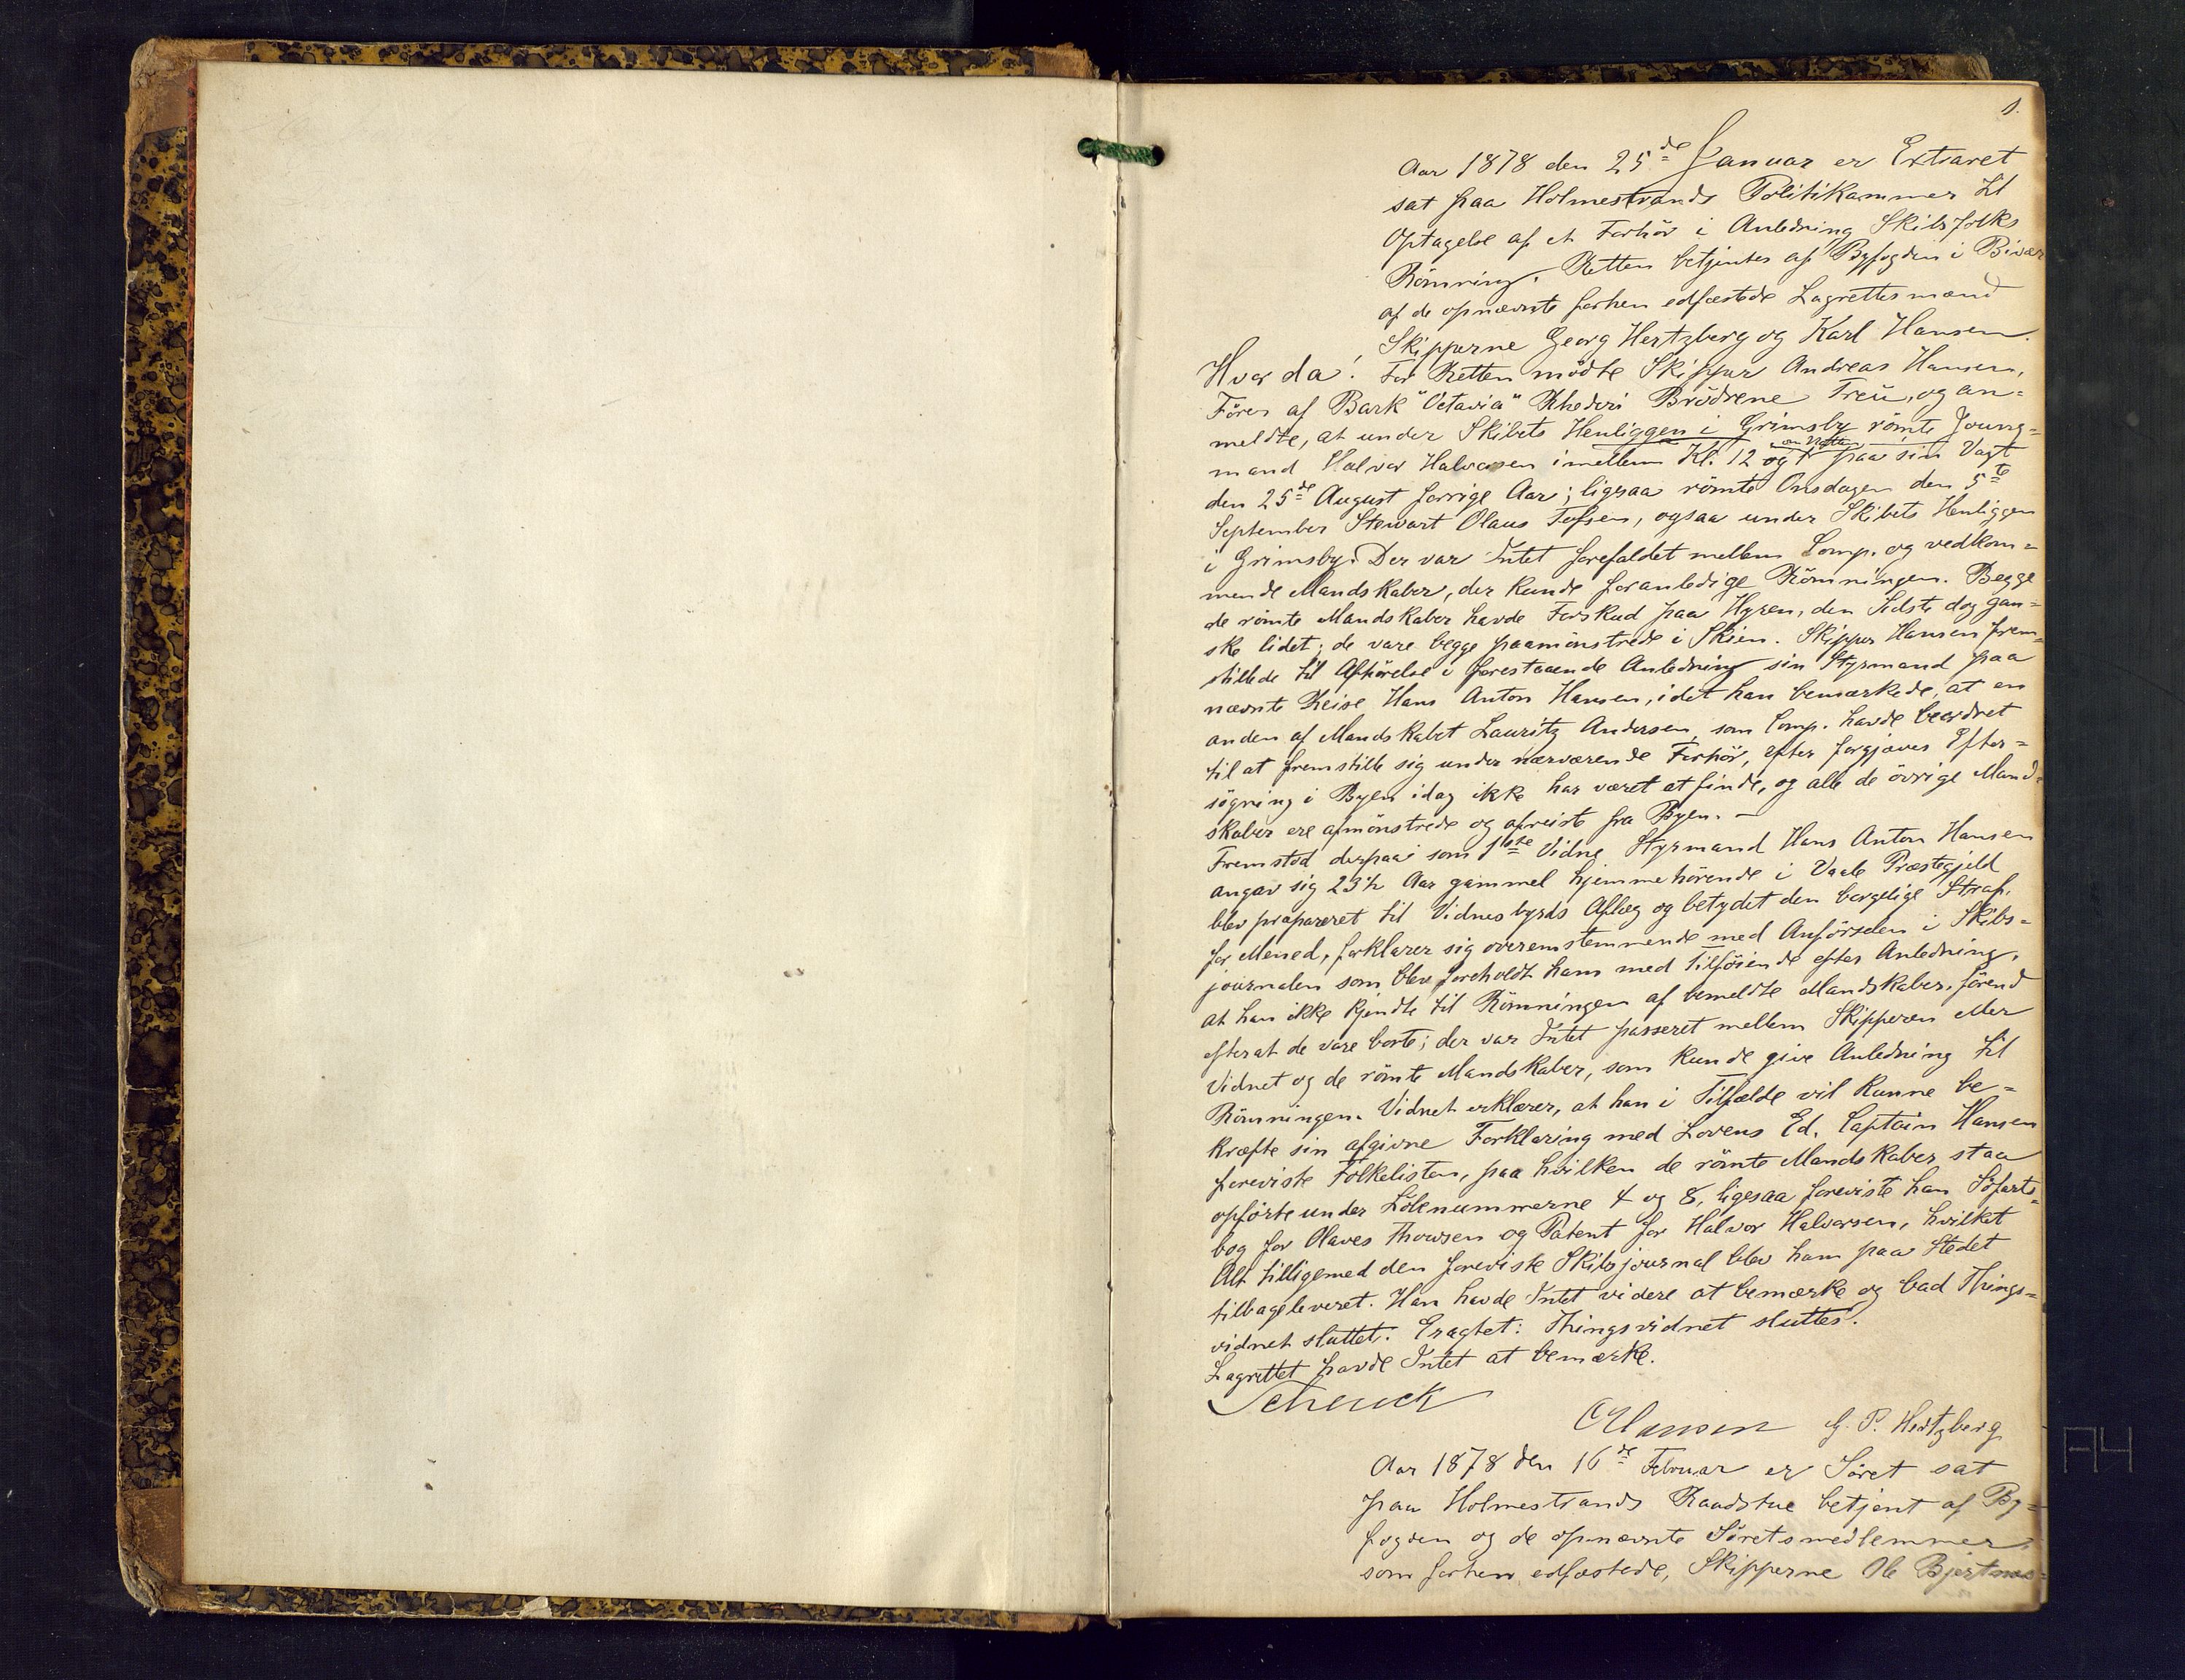 1.
Aar 1878 den 25de Januar er Extraret
sat paa Holmestrands Politikammer til
Optagelse af et Forhör i Anledning Skibsfolks
Römning. Retten betjentes af Byfogden i Bivær
af de opnævnte forhen edfæstede Lagrettesmænd
Skipperne Georg Hertzberg og Karl Hansen.
Hvor da! For Retten mödte Skipper Andreas Hansen,
Förer af Bark "Octavia" Rhederi Brödrene Treu, og an=
meldte, at under Skibets Henliggen i Grimsby römte Joung=
mand Halvor Halvorsen imellem Kl. 12 og 1 om Natten paa sin Vagt
den 25de August forrige Aar; ligesaa römte Onsdagen den 5te
September Stewart Olaus Tofsen, ogsaa under Skibets Henliggen
i Grimsby. Der var Intet forefaldet mellem Comp. og vedkom=
mende Mandskaber, der kunde foranledige Römningen. Begge
de römte Mandskaber havde Forskud paa Hyren, den Sidste dog gan=
ske lidet; de vare begge paamönstrede i Skien. Skipper Hansen frem=
stillede til Afhörelse i forestaaende Anledning sin Styrmand paa
nævnte Reise Hans Anton Hansen, idet han bemærkede, at en
anden af Mandskabet Lauritz Andersen, som Comp. havde beordret
til at fremstille sig under nærværende Forhör, efter forgjæves Efter=
sögning i Byen idag ikke har været at finde, og alle de övrige Mand=
skaber ere afmönstrede og afreiste fra Byen. —
Fremstod derpaa som 1ste Vidne Styrmand Hans Anton Hansen
angav sig 23½ Aar gammel hjemmehörende i Vaale Præstegjeld
blev præpareret til Vidnesbyrds Aflæg og betydet den borgelige Straf
for Mened, forklarer sig overemstemmende med Anförselen i Skibs=
journalen som blev foreholdt ham med Tilföiende efter Anledning,
at han ikke kjendte til Römningen af bemeldte Mandskaber, förend
efterat de vare borte; der var Intet passeret mellem Skipperen eller
Vidnet og de römte Mandskaber, som kunde give Anledning til
Römningen. Vidnet erklærer, at han i Tilfælde vil kunne be=
kræfte sin afgivne Forklaring med Lovens Ed. Captain Hansen
foreviste Folkelisten, paa hvilken de römte Mandskaber staa
opförte under Löbenummerne 4 og 8, ligesaa foreviste han Söfarts=
bog for Olaves Thowsen og Patent for Halvor Halvorsen, hvilket
Alt tilligemed den foreviste Skibsjournal blev ham paa Stedet
tilbageleveret. Han havde Intet videre at bemærke og bad Things=
vidnet sluttet. Eragtet: Thingsvidnet sluttes.
Lagrettet havde Intet at bemærke.
Schenck
CHansen G. P. Hertzberg
Aar 1878 den 16de Februar er Söret sat
paa Holmestrands Raadstue betjent af By=
fogden og de opnævnte Söretsmedlemmer,
som forhen edfæstede, Skipperne Ole Bjertnæs